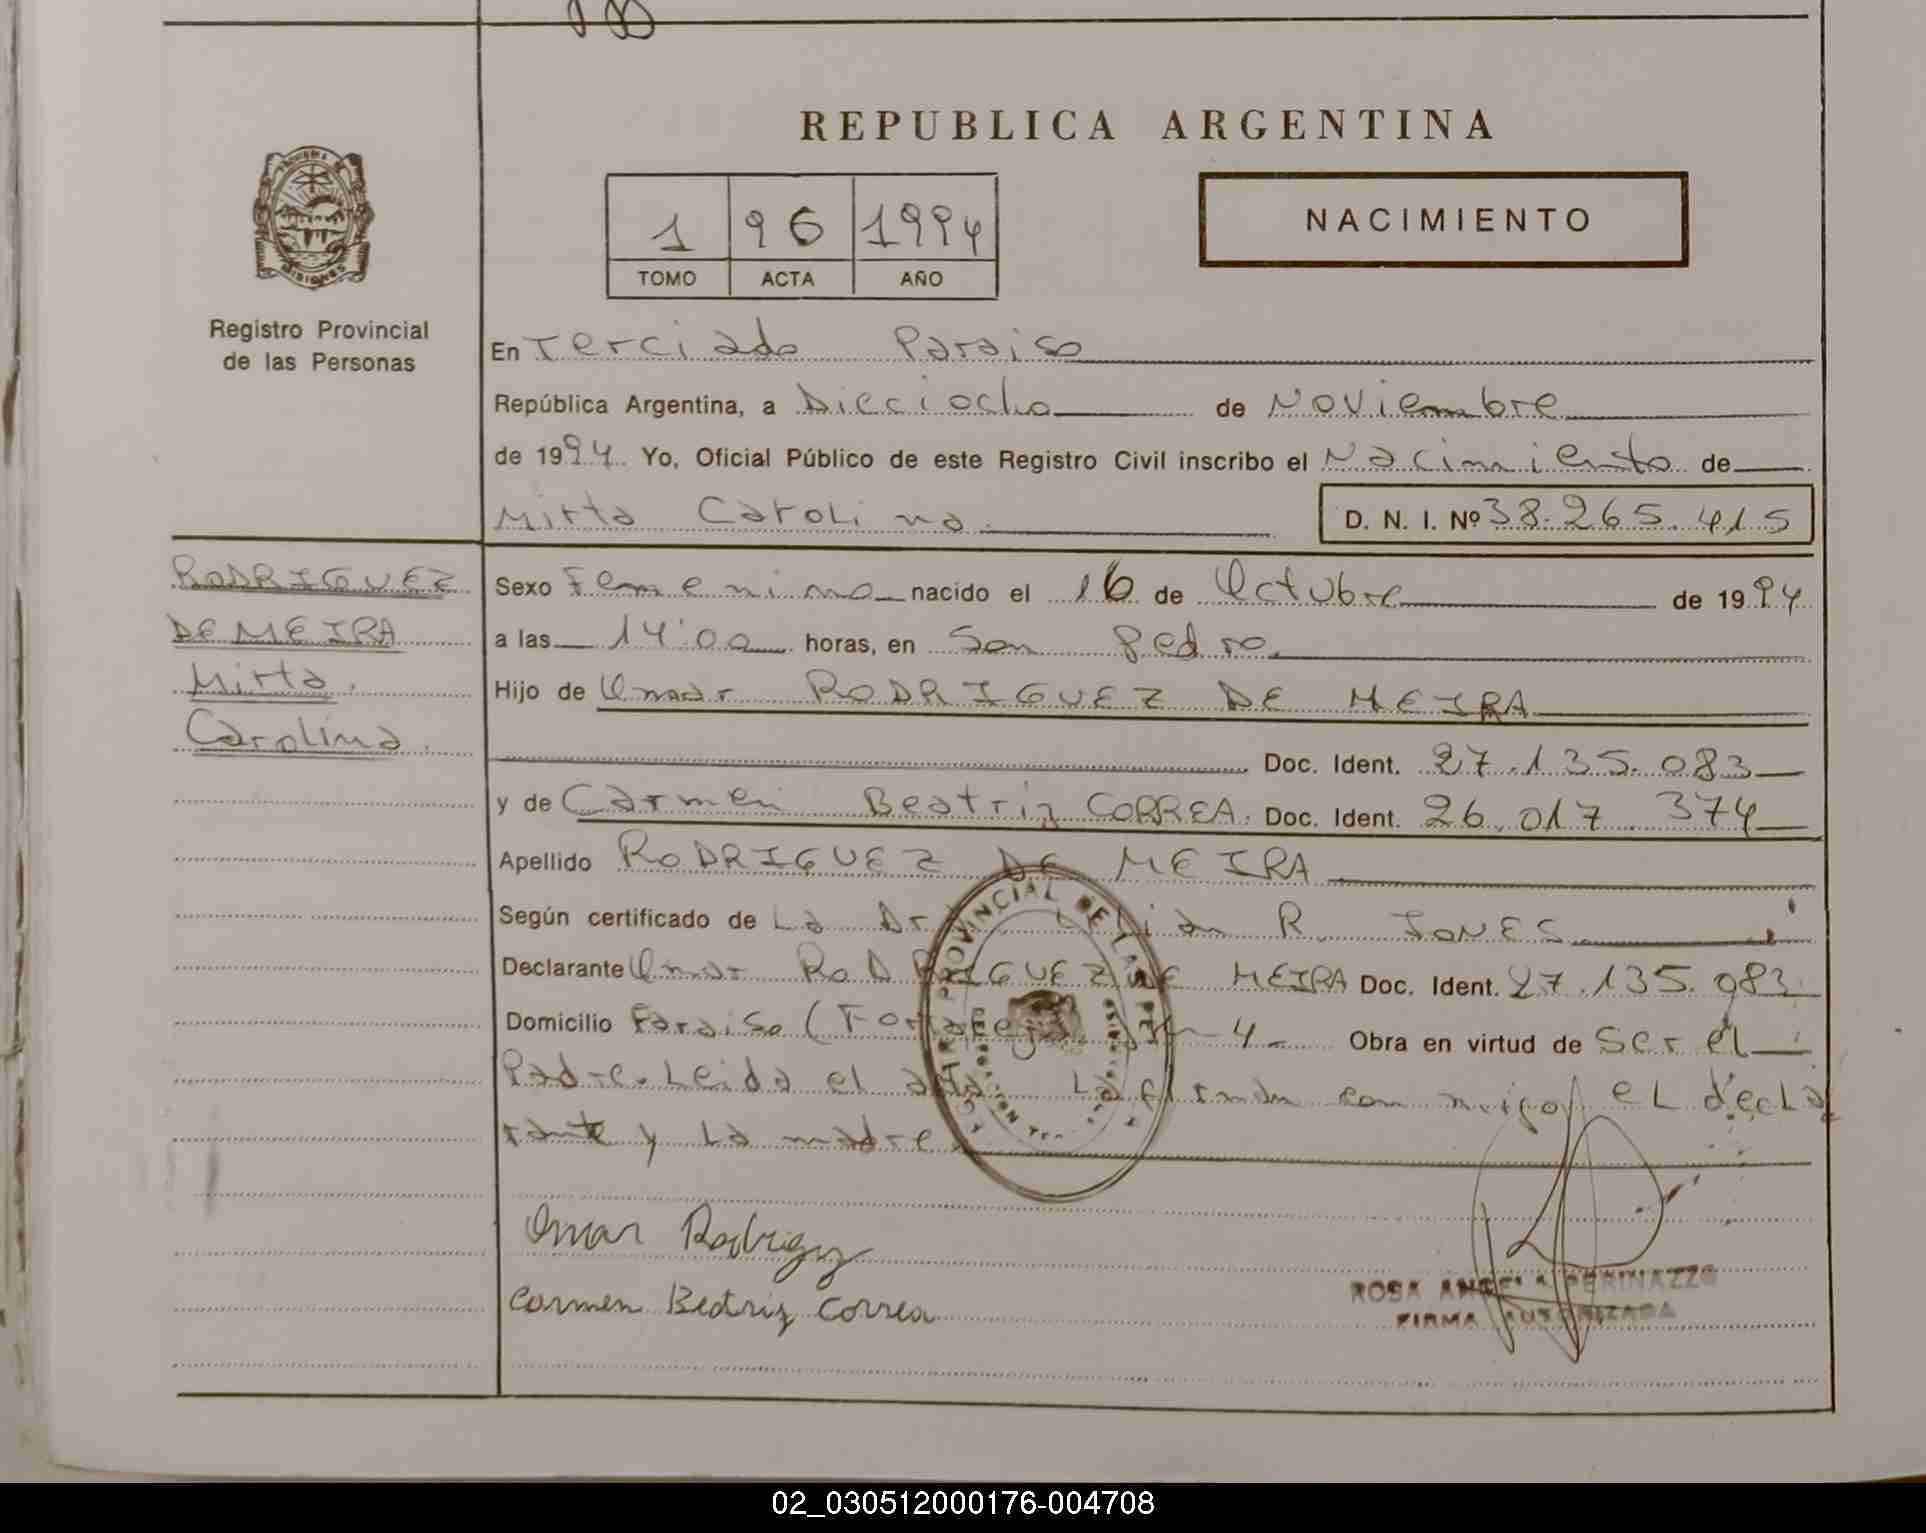 REPUBLICA ARGENTINA
NACIMIENTO
1 96 1994
TOMO ACTA AÑO
PROVINCIA DE
MISIONES
Registro Provincial
de las Personas
En Terciado Paraiso
República Argentina, a Dieciocho de Noviembre
de 1994 Yo, Oficial Público de este Registro Civil inscribo el Nacimiento de
Mirta Carolina
D. N. I. Nº 38.265.415
RODRIGUEZ
DE MEIRA
Mirta
Carolina
Sexo Femenino nacido el 16 de Octubre de 1994
a las 14:00 horas, en San Pedro
Hijo de Omar RODRIGUEZ DE MEIRA
Doc. Ident. 27.135.083
y de Carmen Beatriz CORREA. Doc. Ident. 26.017.374
Apellido RODRIGUEZ DE MEIRA
Según certificado de La Dra. Lilian R. JONES
Declarante Omar RODRIGUEZ DE MEIRA Doc. Ident. 27.135.083
Domicilio Paraiso ( 4 Obra en virtud de Ser el
Padre. Leida el acta La firman conmigo, el decla
rante y La madre
PROVINCIAL DE LAS
Omar Rodriguez
Carmen Beatriz Correa
ROSA ANGELA PERINAZZO
FIRMA AUTORIZADA
02_030512000176-004708